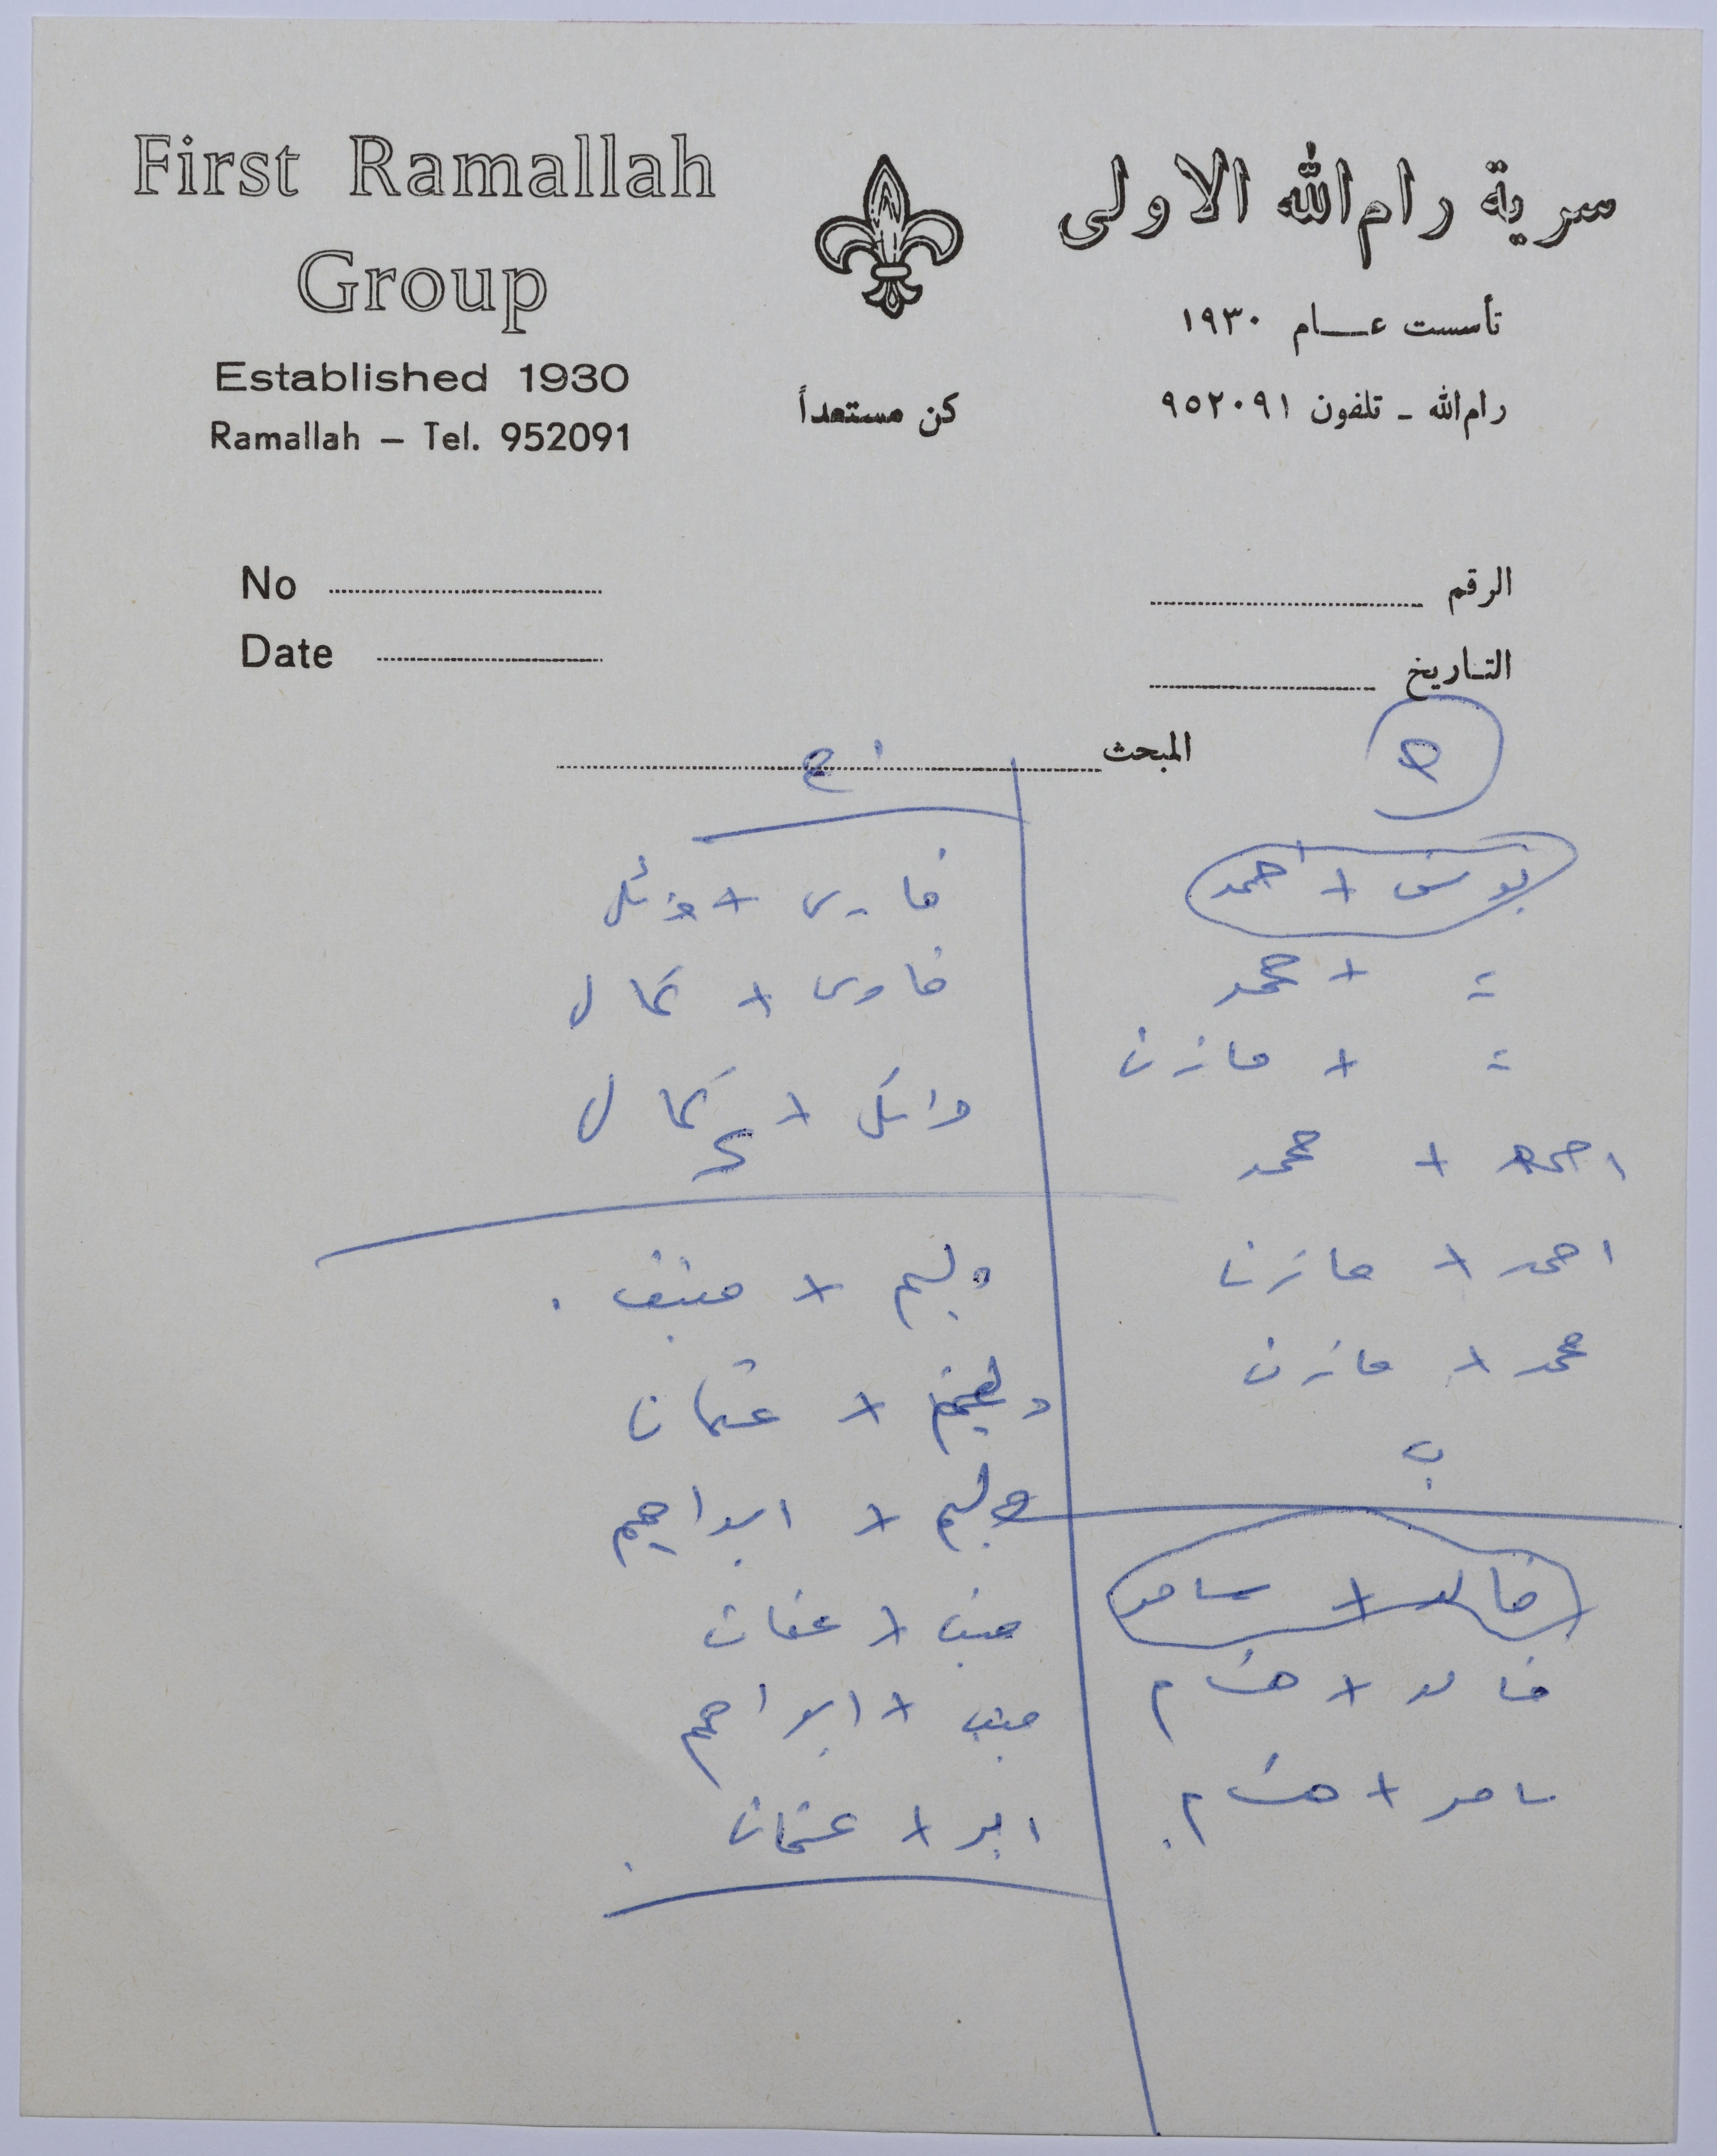 First Ramallah
Group
Established 1930
Ramallah – Tel. 952091
سرية رام الله الاولى
تأسست عـــام ١٩٣٠
رام الله ـ تلفون ٩٥٢٠٩١
كن مستعداً
No
Date
الرقم
التاريخ
المبحث
يوسف + احمد
〃 + محمد
〃 + مازن
احمد + محمد
احمد + مازن
محمد + مازن
ب
خالد + سامر
خالد + هشام
سامر + هشام.
ج
فارس + وائل
فارس + كمال
وائل + كمال
د
وليم + منيف.
وليم + عثمان
وليم + ابراهيم
منيف + عثمان
منيف + ابراهيم
ابر + عثمان.